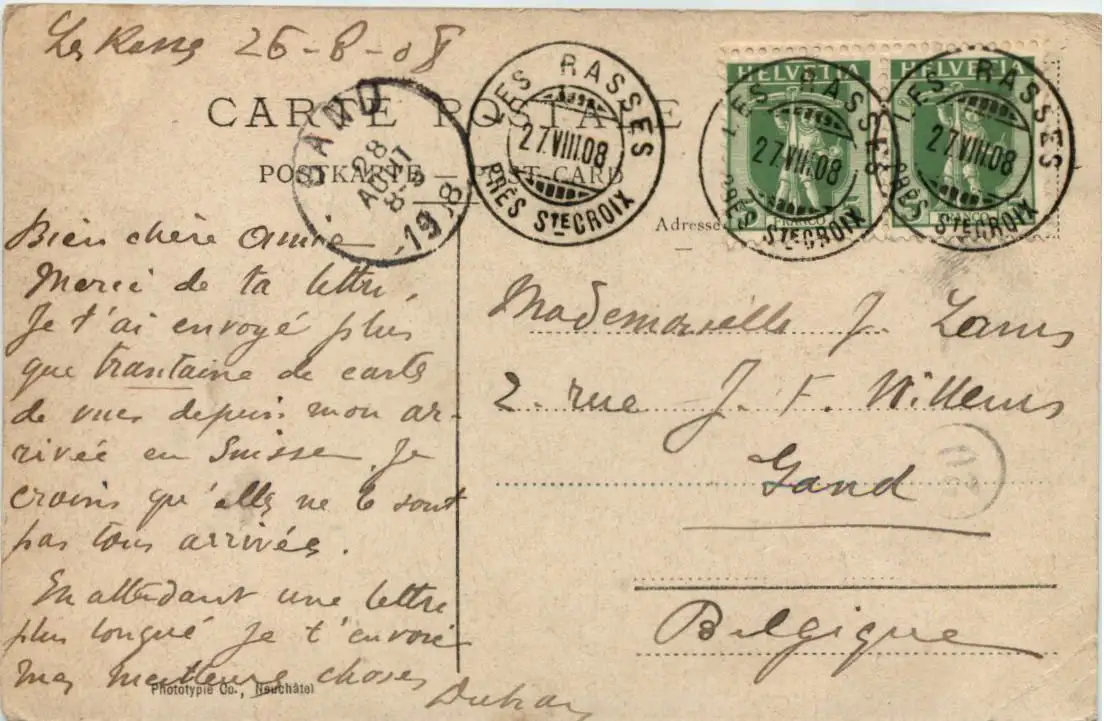 Les Rasses 26-8-08
CARTE POSTALE
POSTKARTE — POST-CARD
LES RASSES
27.VIII.08
PRÈS STE CROIX
GAND
28
AOUT
8-
1908
HELVETIA
FRANCO
LES RASSES
27.VIII.08
PRÈS STE CROIX
HELVETIA
FRANCO
LES RASSES
27.VIII.08
PRÈS STE CROIX
Adresse
Bien chère amie
Merci de ta lettre,
Je t'ai envoyé plus
que trantaine de carte
de vues depuis mon ar-
rivée en Suisse. Je
croins qu'elle ne se sont
pas tous arrivée.
En attendant une lettre
plus longue je t'envoie
mes meilleure choses
Mademoiselle J.
2. rue J. F. Willems
Gand
Belgique
Phototypie Co., Neuchâtel